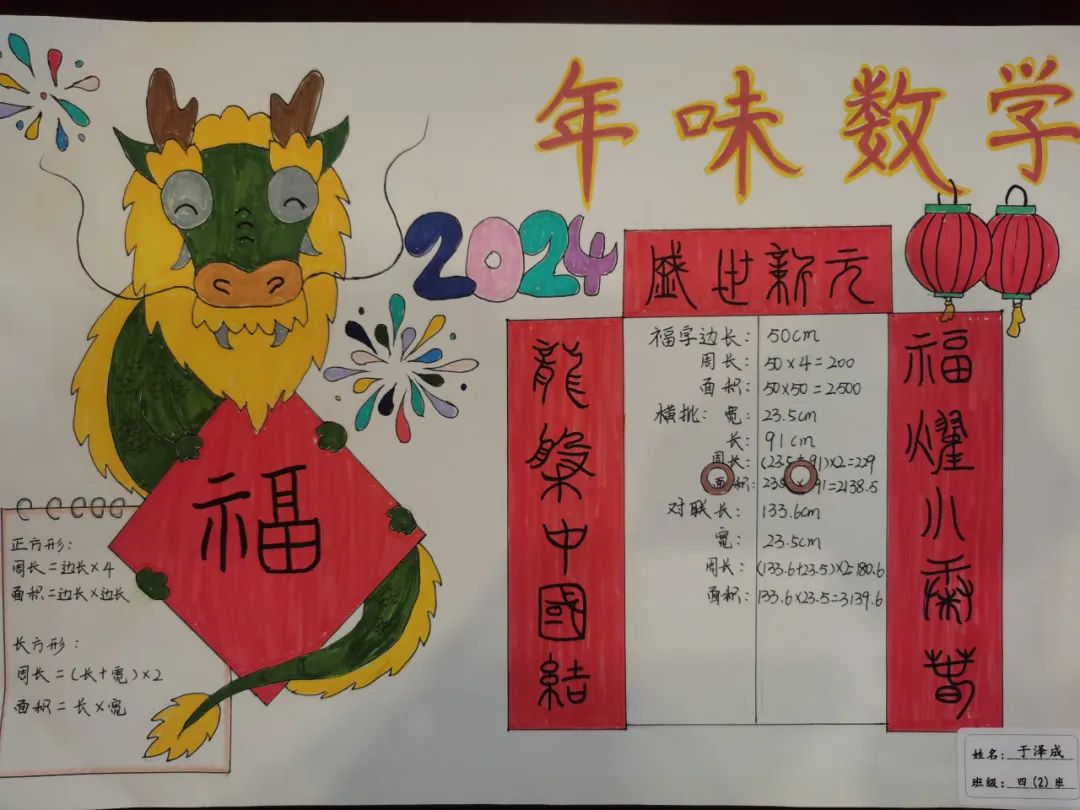 年味数学
2024
盛世新元
龍槃中國結
福燿小康春
福
福字边长: 50cm
周长: 50×4=200
面积: 50×50=2500
横批: 宽: 23.5cm
长: 91cm
周长: (23.5+91)×2=229
面积: 23.5×91=2138.5
对联长: 133.6cm
宽: 23.5cm
周长: (133.6+23.5)×2=180.6
面积: 133.6×23.5=3139.6
正方形:
周长=边长×4
面积=边长×边长
长方形:
周长=(长+宽)×2
面积=长×宽
姓名: 于泽成
班级: 四(2)班